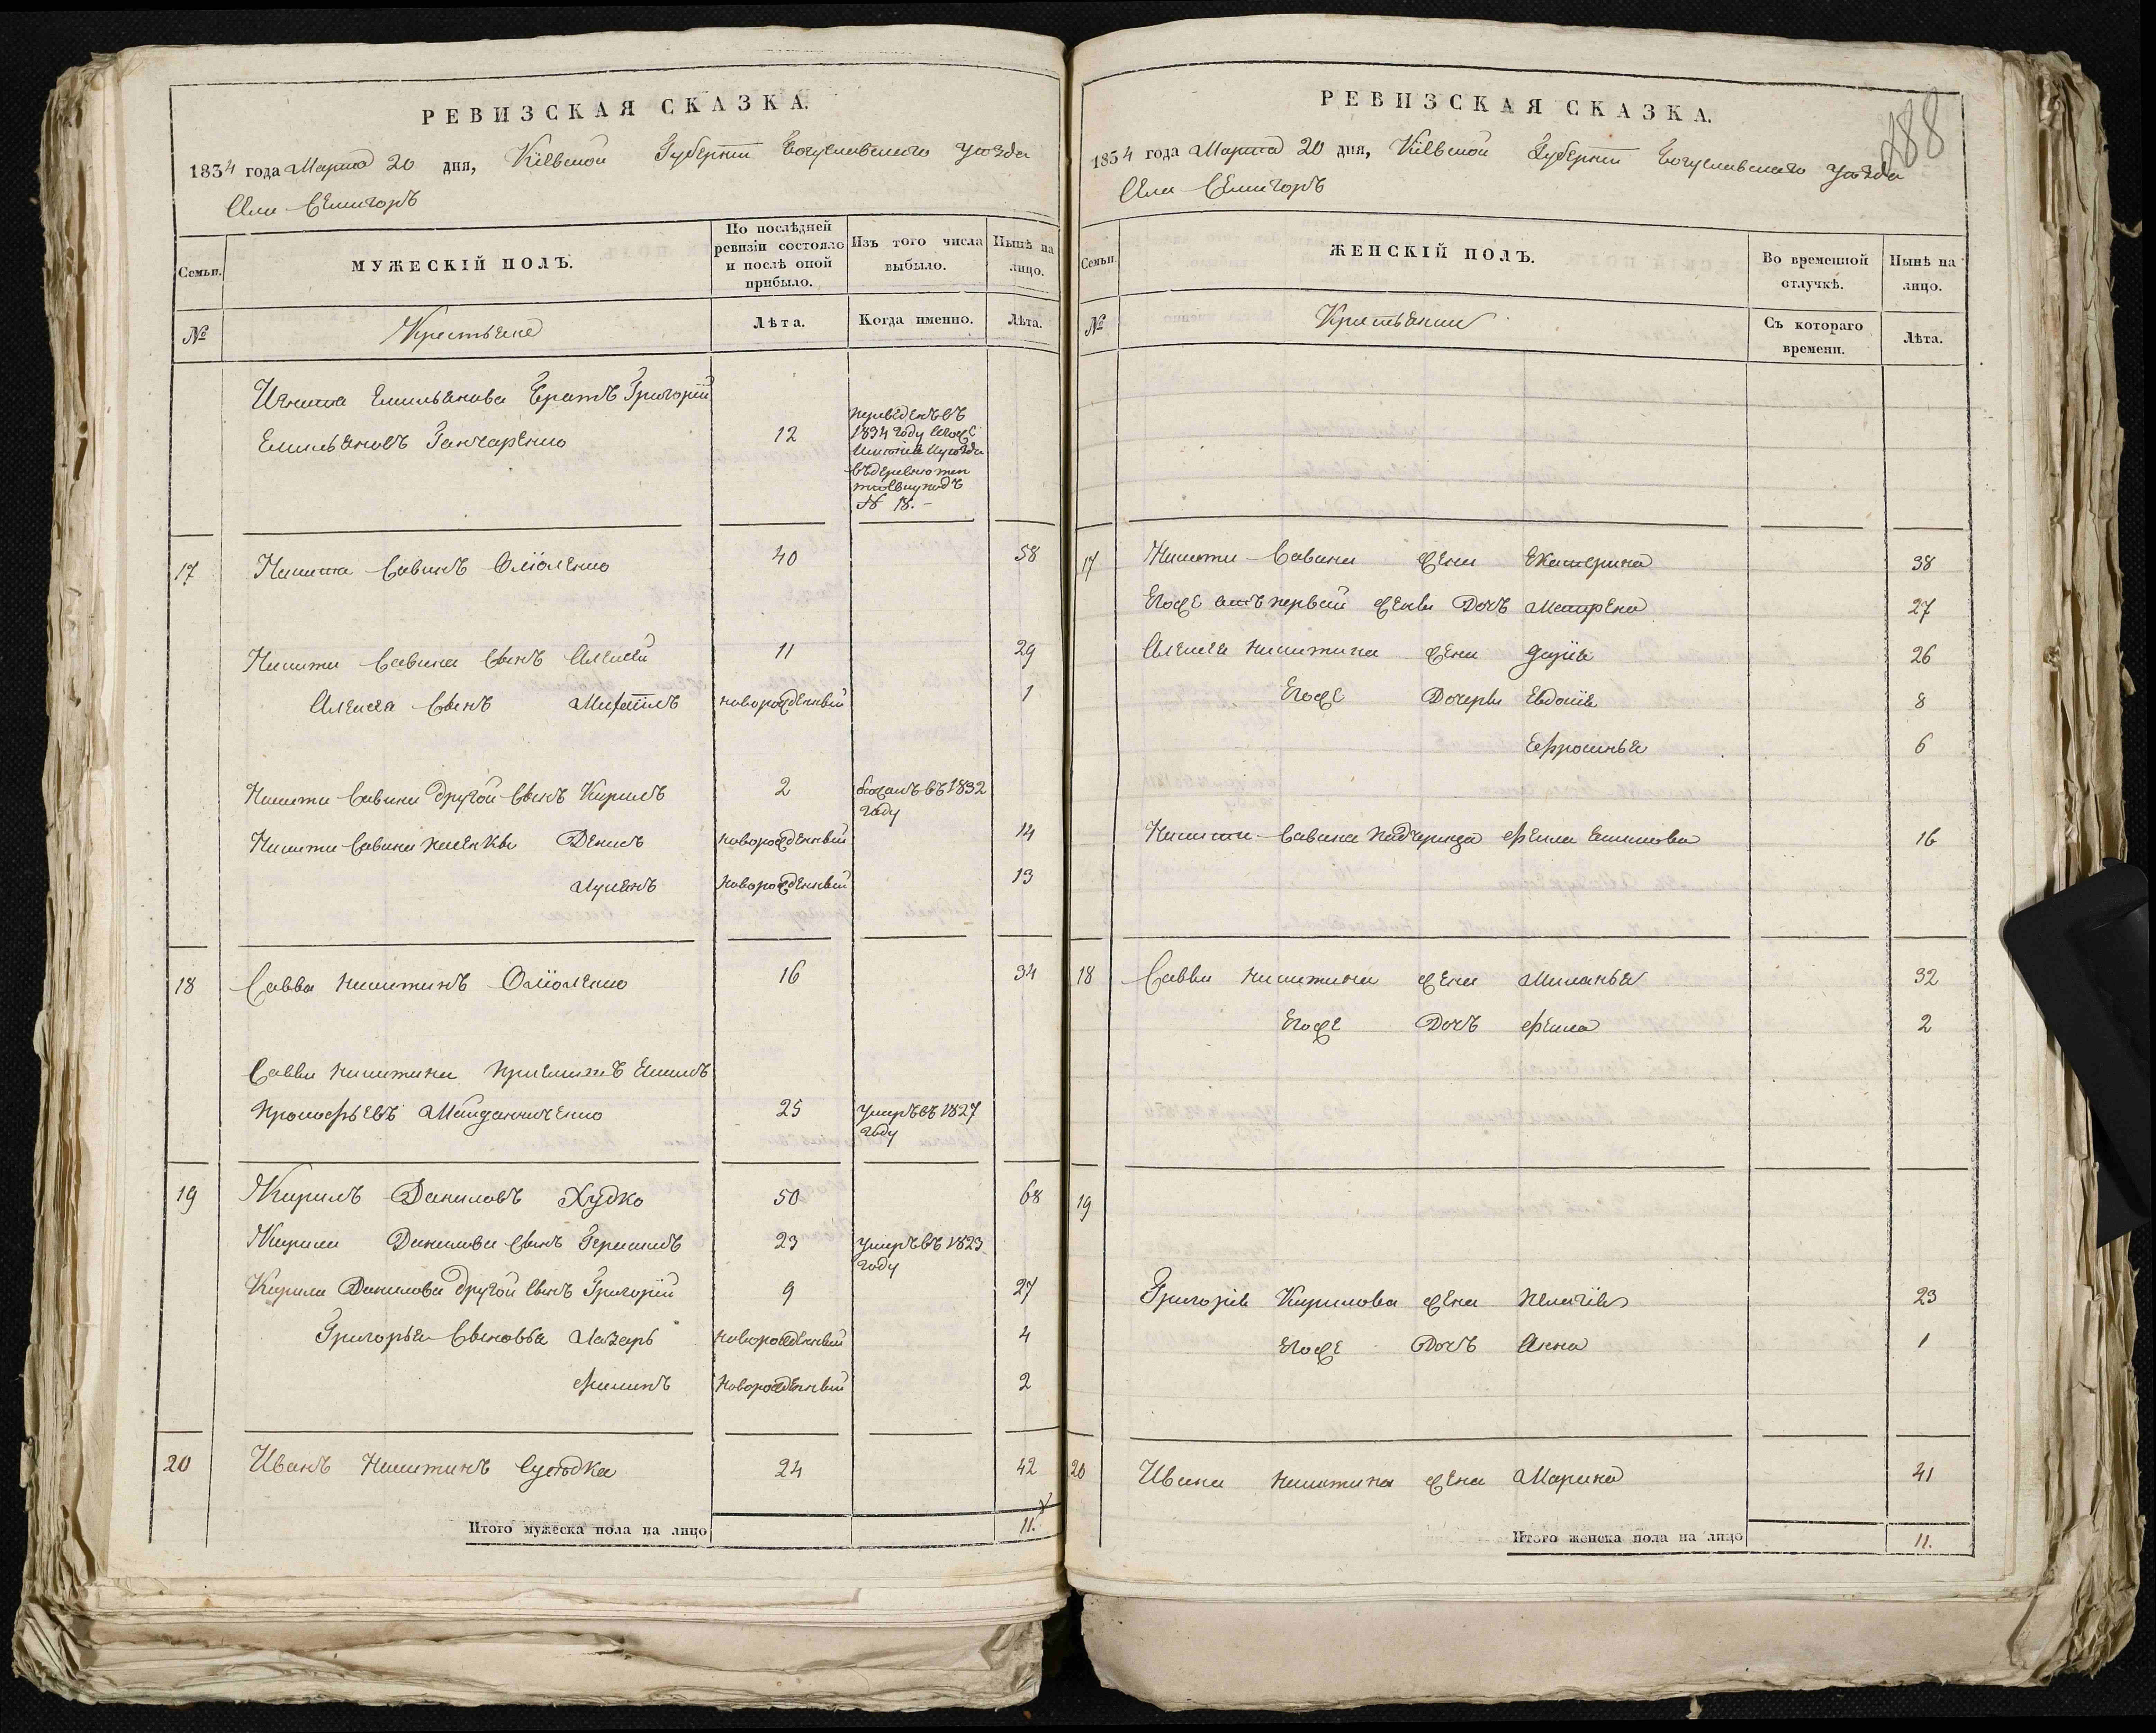 РЕВИЗСКАЯ СКАЗКА.
1834 года Марта 20 дня, Кіевской Губерніи Богуславскаго уѣзда
Села Семигоръ
Семьи.
МУЖЕСКІЙ ПОЛЪ.
По послѣдней ревизіи состояло и послѣ оной прибыло.
Изъ того числа выбыло.
Нынѣ на лицо.
№
Крестьяне
Лѣта.
Когда именно.
Лѣта.
Игната Емельянова Братъ Григорій
Емельяновъ Ганчаренко 12
переведенъ въ
1834 году
уѣзда
въ деревню
подъ
№ 18.
17 Никита Савинъ 40 58
Никиты Савина сынъ Алексѣй 11 29
Алексѣя сынъ Михаилъ новорожденный 1
Никиты Савина другой сынъ Кирилъ 2 въ 1832
году
Никиты Савина пасенки Денисъ новорожденный 14
Лукьянъ новорожденный 13
18 Савва Никитинъ 16 34
Саввы Никитина приемышъ Екимъ
Прокофьевъ Майданниченко 25 умеръ въ 1827
году
19 Кирилъ Даниловъ Худко 50 68
Кирила Данилова сынъ Герасимъ 23 умеръ въ 1823
году
Кирила Данилова другой сынъ Григорій 9 27
Григорья сыновья Лазарь новорожденный 4
Филипъ новорожденный 2
20 Иванъ Никитинъ 24 42
Итого мужеска пола на лицо 11.
РЕВИЗСКАЯ СКАЗКА.
188
1834 года Марта 20 дня, Кіевской Губерніи Богуславскаго уѣзда
Села Семигоръ
Семьи.
ЖЕНСКІЙ ПОЛЪ.
Во временной отлучкѣ.
Нынѣ на лицо.
№
Крестьянки
Съ котораго времени.
Лѣта.
17 Никиты Савина жена Екатерина 38
Егоже отъ первой жены дочь Матрена 27
Алексѣя Никитина жена Дарія 26
Егоже дочеры Евдокія 8
Ефросинья 6
Никиты Савина падчерица Фекла Екимова 16
18 Саввы Никитина жена Миланья 32
Егоже дочь Фекла 2
19
Григорія Кирилова жена Пелагія 23
Егоже дочь Анна 1
20 Ивана Никитина жена Марина 41
Итого женска пола на лицо 11.